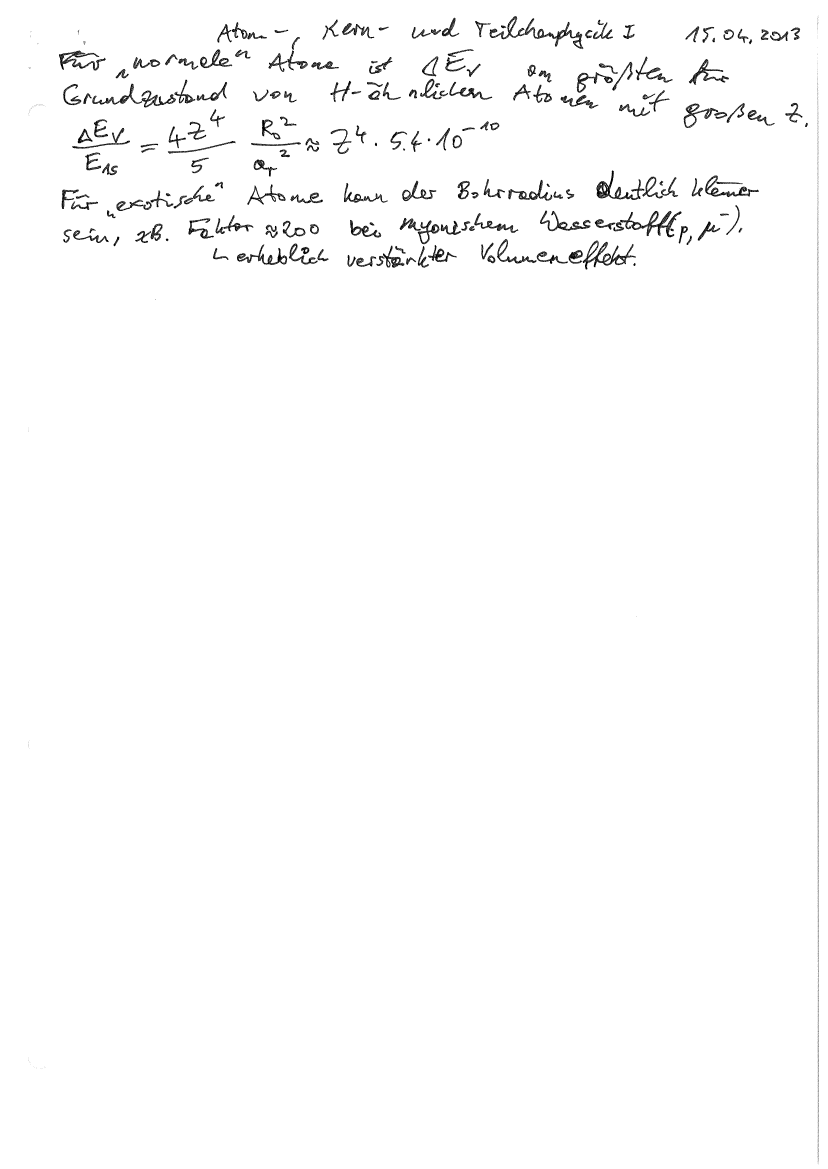 Atom-, Kern- und Teilchenphysik I 15.04.2013
Für „normale" Atome ist ΔE_V am größten für
Grundzustand von H-ähnlichen Atomen mit großen Z.
ΔE_V/E_1s = 4Z^4/5 R_0^2/a_r^2 ≈ Z^4 · 5.4 · 10^-10
Für „exotische" Atome kann der Bohrradius deutlich kleiner
sein, zB. Faktor ≈200 bei myonischem Wasserstoff(p, μ^-).
↳ erheblich verstärkter Volumeneffekt.